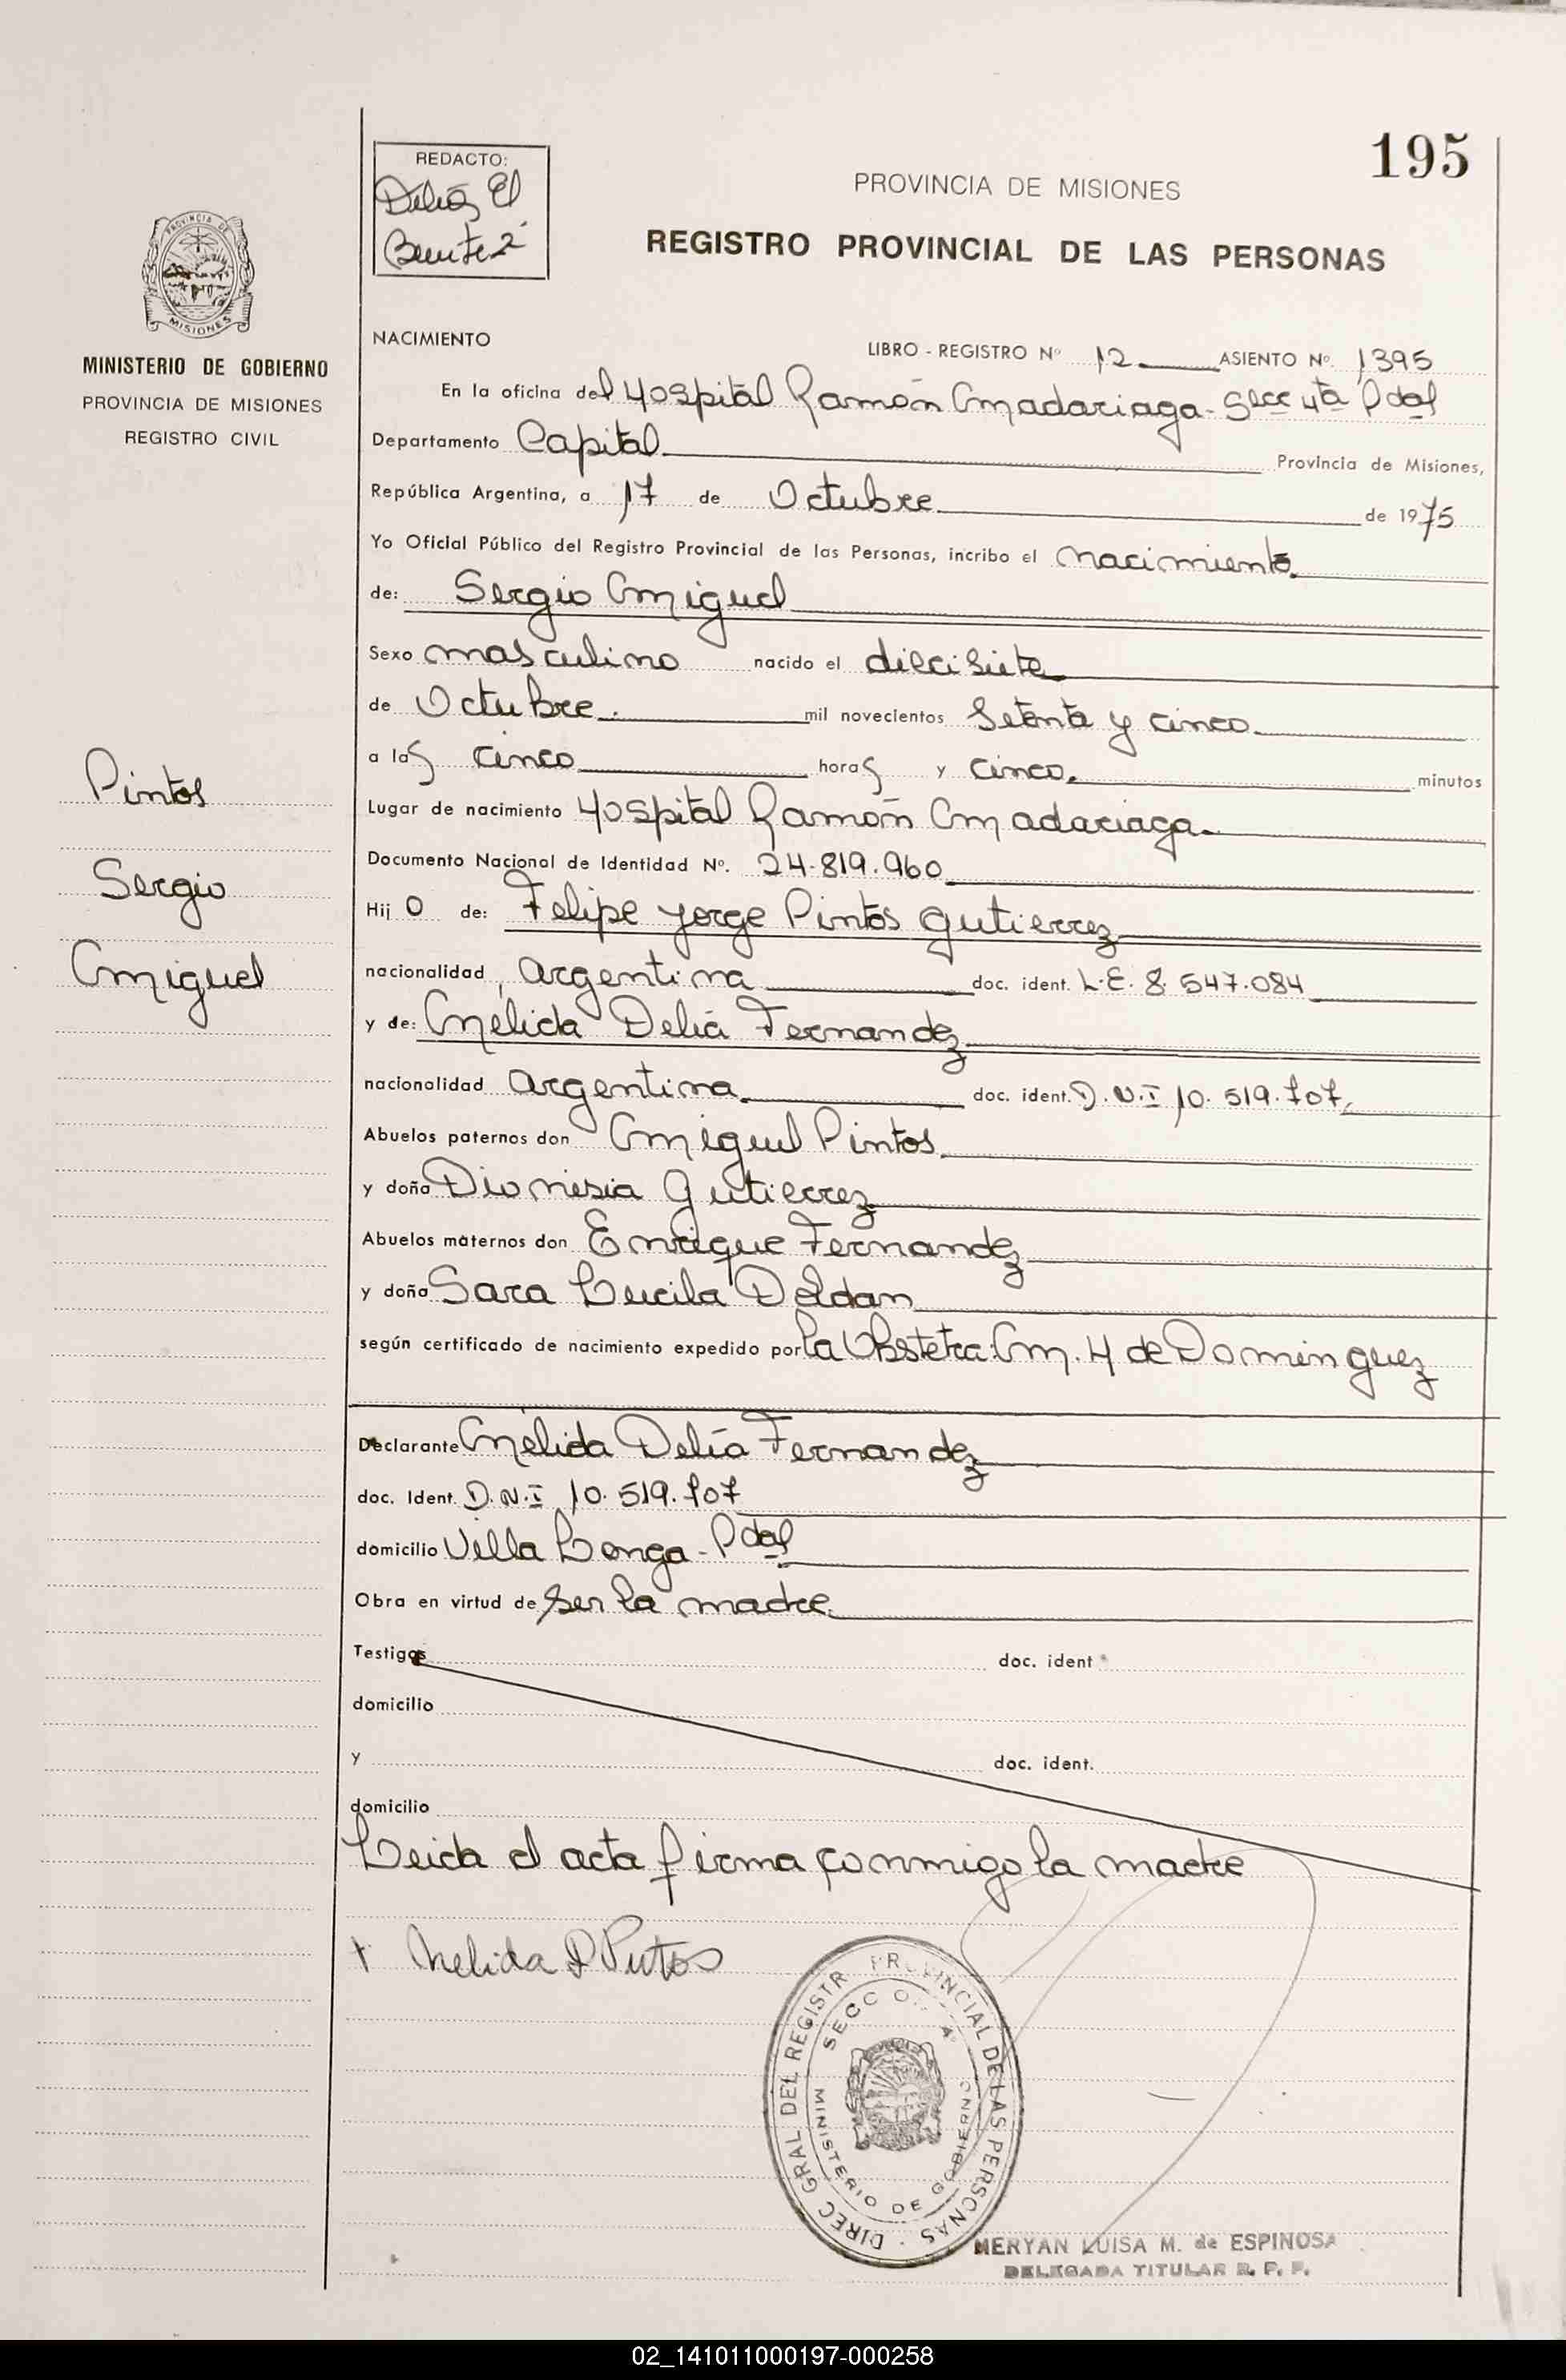 195
REDACTO:
Delia El
Benitez
PROVINCIA DE MISIONES
REGISTRO PROVINCIAL DE LAS PERSONAS
PROVINCIA DE
MISIONES
MINISTERIO DE GOBIERNO
PROVINCIA DE MISIONES
REGISTRO CIVIL
Pintos
Sergio
Miguel
NACIMIENTO
LIBRO - REGISTRO Nº 12 ASIENTO Nº. 1395
En la oficina del Hospital Ramón Madariaga - Secc 4ta Pdas
Departamento Capital Provincia de Misiones,
República Argentina, a 17 de Octubre de 1975
Yo Oficial Público del Registro Provincial de las Personas, incribo el nacimiento
de: Sergio Miguel
Sexo masculino nacido el diecisiete
de Octubre mil novecientos Setenta y cinco
a las cinco horas y cinco minutos
Lugar de nacimiento Hospital Ramón Madariaga
Documento Nacional de Identidad Nº. 24.819.960
Hijo de: Felipe Jorge Pintos Gutierrez
nacionalidad Argentina doc. ident. L.E. 8.547.084
y de: Mélida Delia Fernandez
nacionalidad Argentina doc. ident. D.N.I 10.519.707
Abuelos paternos don Miguel Pintos
y doña Dionisia Gutierrez
Abuelos maternos don Enrique Fernandez
y doña Sara Lucila Doldan
según certificado de nacimiento expedido por la Obstetra: M. H de Dominguez
Declarante Mélida Delia Fernandez
doc. Ident. D.N.I 10.519.707
domicilio Villa Longa - Pdas
Obra en virtud de ser la madre
Testigos doc. ident
domicilio
y doc. ident.
domicilio
Leida el acta firma conmigo la madre
+ Melida D Pintos
DIREC GRAL DEL REGISTR PROVINCIAL DE LAS PERSONAS
SECCION 4
MINISTERIO DE GOBIERNO
MERYAN LUISA M. de ESPINOSA
DELEGADA TITULAR R. P. P.
02_141011000197-000258